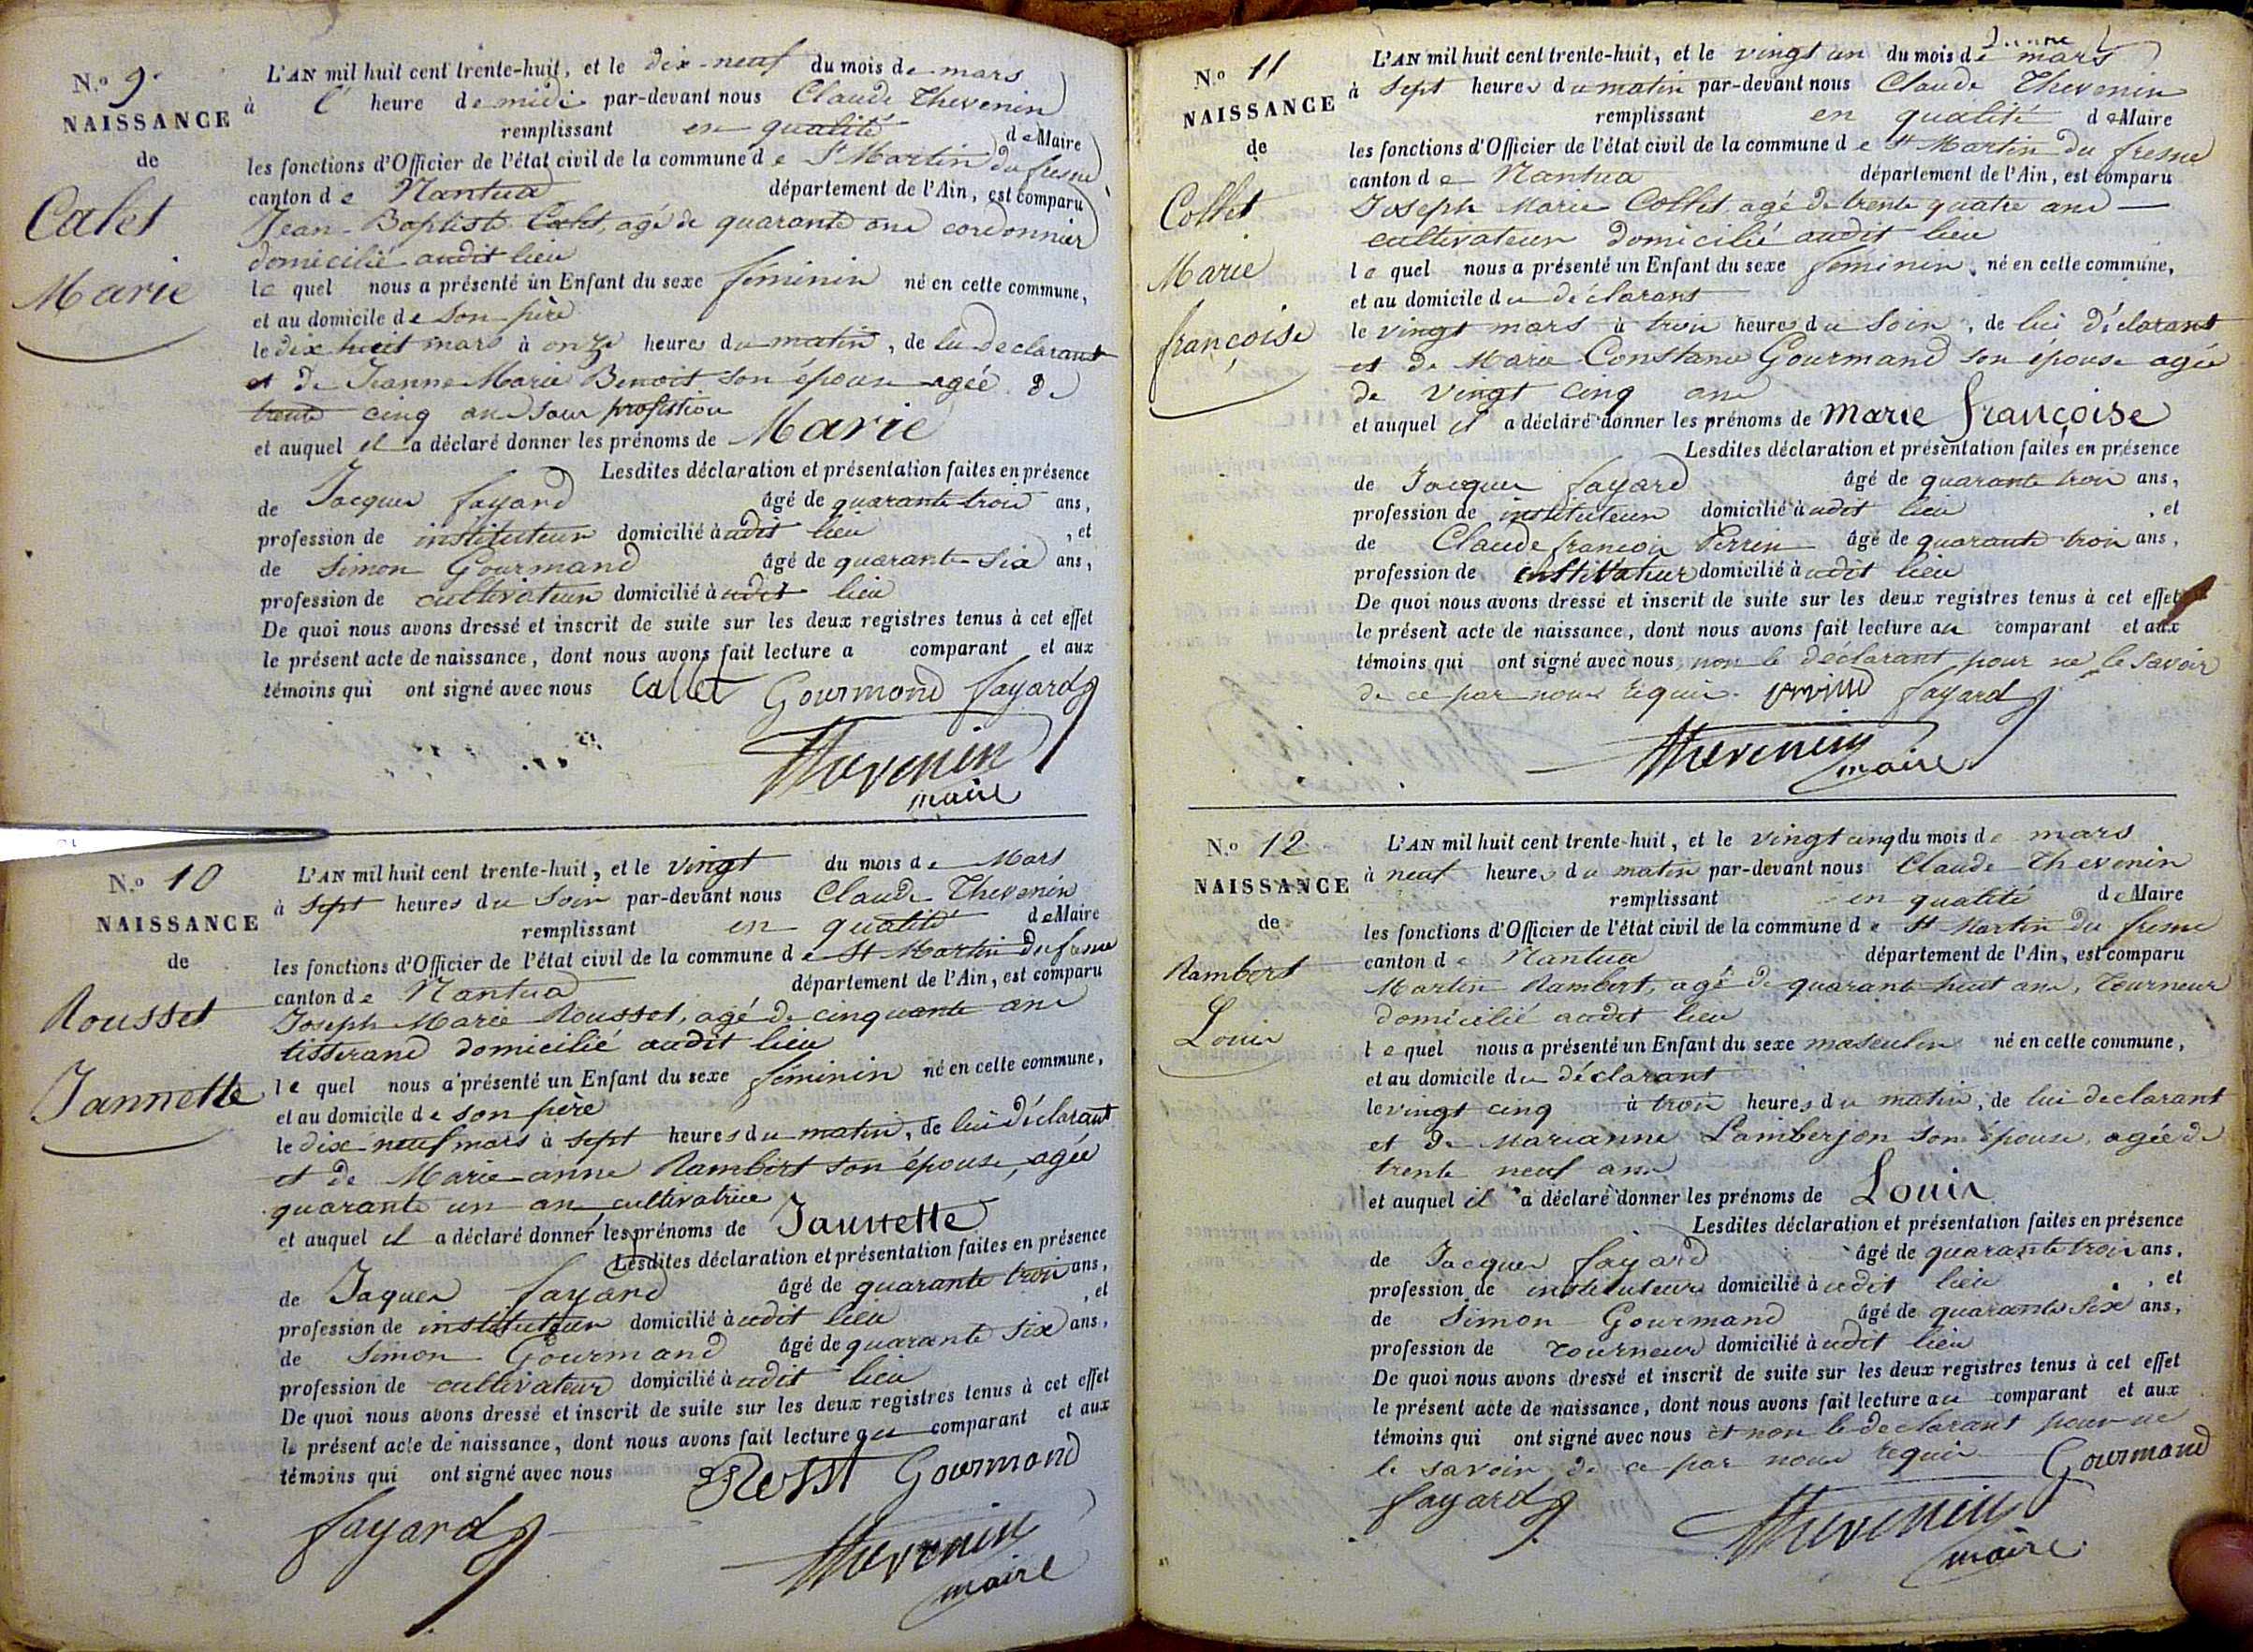 N.o 9
NAISSANCE
de
Calet
Marie
L'AN mil huit cent trente-huit, et le dix-neuf du mois de mars
à l' heure de midi par-devant nous Claude Thevenin
remplissant en qualité de Maire
les fonctions d'Officier de l'état civil de la commune de St Martin du fresne
canton de Nantua département de l'Ain, est comparu
Jean-Baptiste Calet, agé de quarante ans cordonnier
domicilié audit lieu
lequel nous a présenté un Enfant du sexe féminin né en cette commune,
et au domicile de son père
le dix huit mars à onze heures du matin, de lui declarant
et de Jeanne Marie Benoit son épouse agée de
trente cinq ans sans profession
et auquel il a déclaré donner les prénoms de Marie
Lesdites déclaration et présentation faites en présence
de Jacques fayard âgé de quarante trois ans,
profession de instituteur domicilié à udit lieu , et
de Simon Gourmand âgé de quarante-six ans,
profession de cultivateur domicilié à udit lieu
De quoi nous avons dressé et inscrit de suite sur les deux registres tenus à cet effet
le présent acte de naissance, dont nous avons fait lecture a comparant et aux
témoins qui ont signé avec nous Callet Gourmond fayard
Thevenin
maire
N.o 10
NAISSANCE
de
Rousset
Jannette
L'AN mil huit cent trente-huit, et le vingt du mois de Mars
à sept heures du soir par-devant nous Claude Thevenin
remplissant en qualité de Maire
les fonctions d'Officier de l'état civil de la commune de St Martin du fresne
canton de Nantua département de l'Ain, est comparu
Joseph Marie Rousset, agé de cinquante ans
tisserand domicilié audit lieu
lequel nous a présenté un Enfant du sexe féminin né en cette commune,
et au domicile de son père
le dix-neuf mars à sept heures du matin, de lui déclarant
et de Marie-anne Rambert son épouse, agée
quarante un ans, cultivatrice
et auquel il a déclaré donner les prénoms de Jannette
Lesdites déclaration et présentation faites en présence
de Jaques fayard âgé de quarante trois ans,
profession de instituteur domicilié à udit lieu , et
de Simon Gourmand âgé de quarante six ans,
profession de cultivateur domicilié à udit lieu
De quoi nous avons dressé et inscrit de suite sur les deux registres tenus à cet effet
le présent acte de naissance, dont nous avons fait lecture au comparant et aux
témoins qui ont signé avec nous Gourmond
fayard
Thevenin
maire
N.o 11
NAISSANCE
de
Collet
Marie
françoise
L'AN mil huit cent trente-huit, et le vingt un du mois de mars
à sept heures du matin par-devant nous Claude Thevenin
remplissant en qualité de Maire
les fonctions d'Officier de l'état civil de la commune de St Martin du fresne
canton de Nantua département de l'Ain, est comparu
Joseph Marie Collet, agé de trente quatre ans
cultivateur domicilié audit lieu
lequel nous a présenté un Enfant du sexe féminin né en cette commune,
et au domicile du déclarant
le vingt mars à trois heures du soir, de lui déclarant
et de Marie Constance Gourmand son épouse agée
de vingt cinq ans
et auquel il a déclaré donner les prénoms de Marie françoise
Lesdites déclaration et présentation faites en présence
de Jacques fayard âgé de quarante trois ans,
profession de instituteur domicilié à udit lieu , et
de Claude françois Perrin âgé de quarante trois ans,
profession de domicilié à udit lieu
De quoi nous avons dressé et inscrit de suite sur les deux registres tenus à cet effet
le présent acte de naissance, dont nous avons fait lecture au comparant et aux
témoins qui ont signé avec nous non le déclarant pour ne le savoir
de ce par nous requis. fayard
Thevenin
maire
N.o 12
NAISSANCE
de
Rambert
Louis
L'AN mil huit cent trente-huit, et le vingt cinq du mois de mars
à neuf heures du matin par-devant nous Claude Thevenin
remplissant en qualité de Maire
les fonctions d'Officier de l'état civil de la commune de St Martin du fresne
canton de Nantua département de l'Ain, est comparu
Martin Rambert, agé de quarante huit ans, Tourneur
domicilié audit lieu
lequel nous a présenté un Enfant du sexe masculin né en cette commune,
et au domicile du déclarant
le vingt cinq à trois heures du matin, de lui declarant
et de Marianne Lamberjon son épouse, agée de
trente neuf ans
et auquel il a déclaré donner les prénoms de Louis
Lesdites déclaration et présentation faites en présence
de Jacques fayard âgé de quarante trois ans,
profession de instituteur domicilié à udit lieu , et
de Simon Gourmand âgé de quarante six ans,
profession de Tourneur domicilié à udit lieu
De quoi nous avons dressé et inscrit de suite sur les deux registres tenus à cet effet
le présent acte de naissance, dont nous avons fait lecture au comparant et aux
témoins qui ont signé avec nous et non le declarant pour ne
le savoir de ce par nous requis Gourmand
fayard
Thevenin
maire